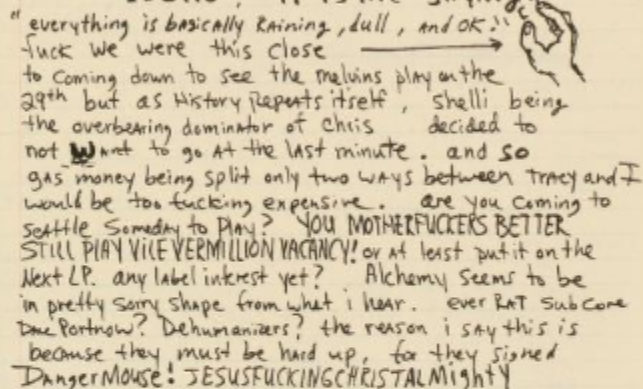 "everything is basically Raining, dull, and OK!"
fuck we were this close
to coming down to see the melvins play on the
29th but as History Repeats itself, Shelli being
the overbearing dominator of Chris decided to
not want to go At the last minute. and so
gas money being split only two ways between Tracy and I
would be too fucking expensive. are you coming to
seattle Someday to Play? YOU MOTHERFUCKERS BETTER
STILL PLAY VILE VERMILLION VACANCY! or at least put it on the
Next LP. any label interest yet? Alchemy seems to be
in pretty sorry shape from what i hear. ever RAT Subcore
Dave Portnow? Dehumanizers? the reason i say this is
because they must be hard up, for they signed
DangerMouse! JESUSFUCKINGCHRISTALMIGHTY